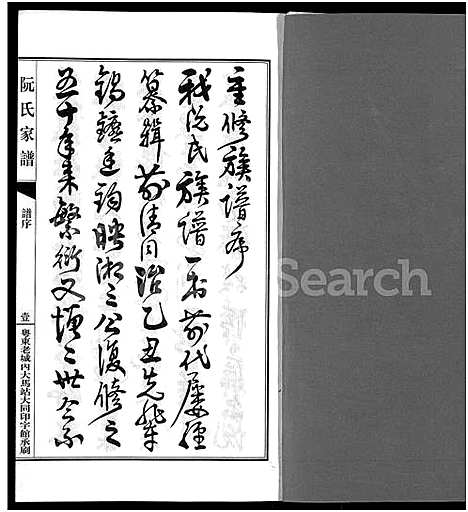 重修族譜序
我阮氏族譜一書前代屢經
纂輯前清同治乙丑先輩
錫鑣廷鈞映湘三公復修之
五十年來繁衍又增二世
阮氏家譜
譜序
壹
粵東老城內大馬站大同印字館承刷
Search